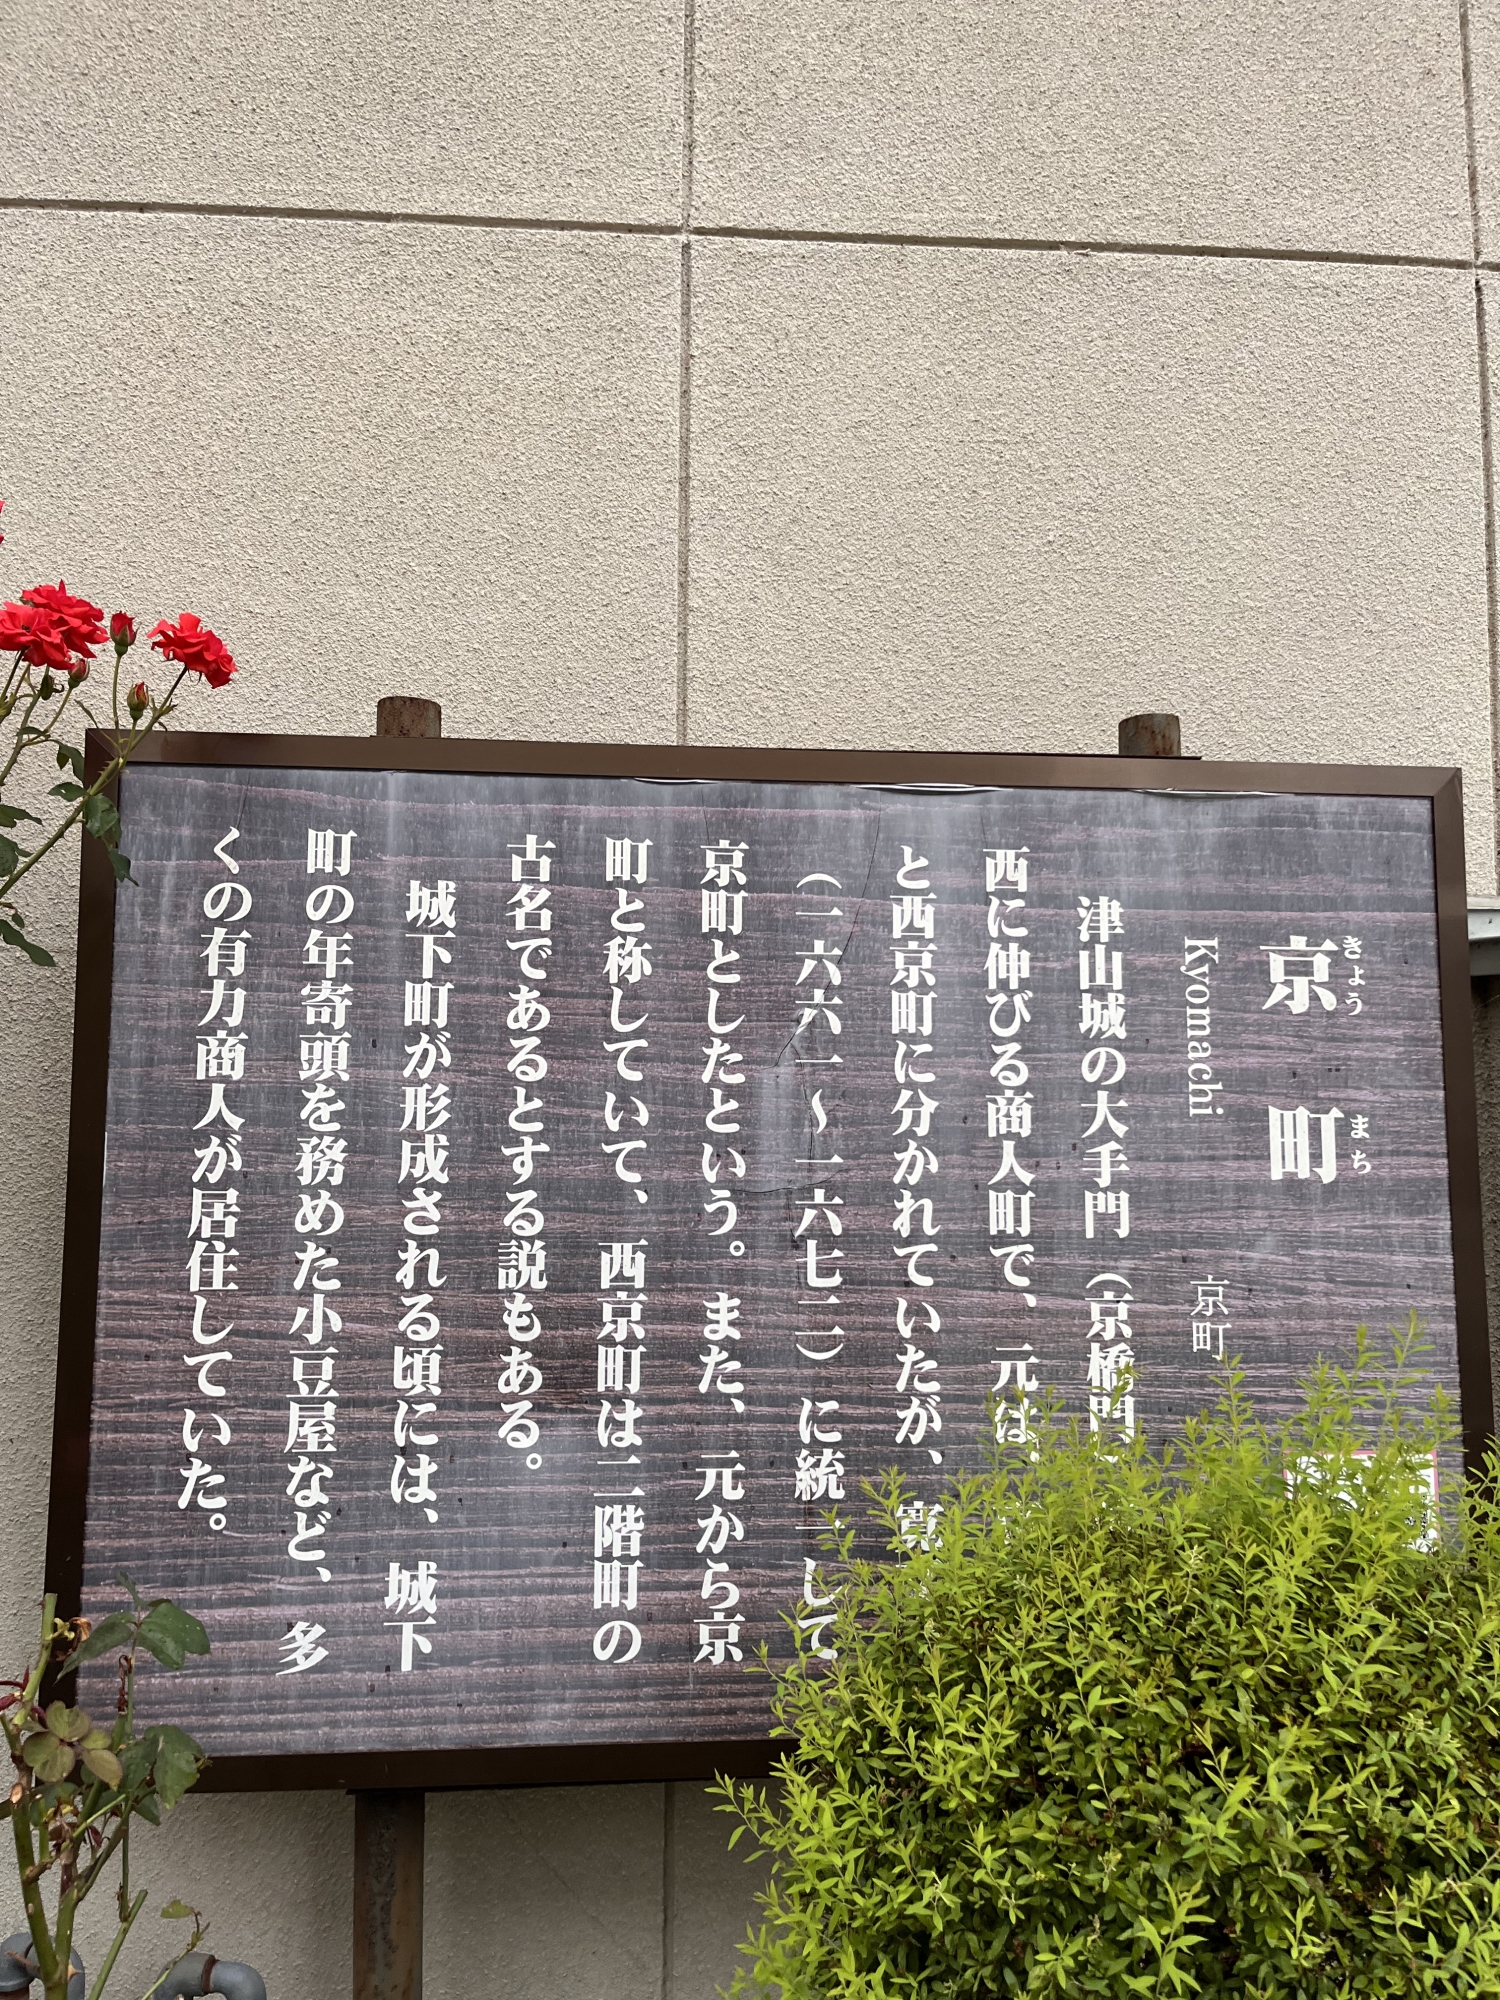 京町
きょう まち
Kyomachi 京町
津山城の大手門（京橋門
西に伸びる商人町で、元は
と西京町に分かれていたが、寛
（一六六一～一六七二）に統一して
京町としたという。また、元から京
町と称していて、西京町は二階町の
古名であるとする説もある。
城下町が形成される頃には、城下
町の年寄頭を務めた小豆屋など、多
くの有力商人が居住していた。